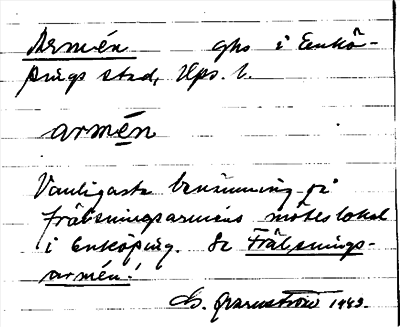 Armén ghs i Enkö-
pings stad, Ups. l.
armén
Vanligaste benämning på
frälsningsarméns möteslokal
i Enköping. Se Frälsnings-
armén!
1943.